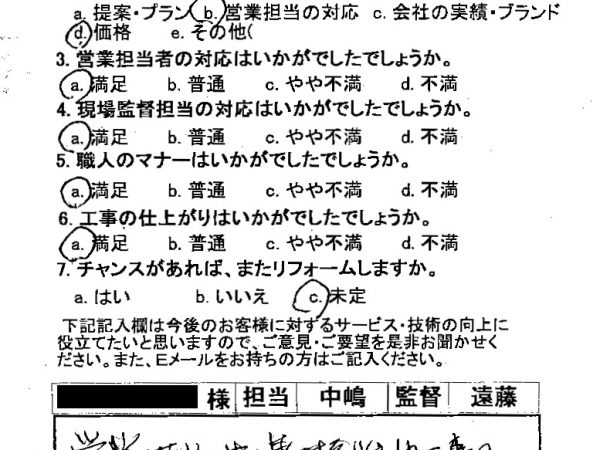 a. 提案・プラン b. 営業担当の対応 c. 会社の実績・ブランド
d. 価格 e. その他(
3. 営業担当者の対応はいかがでしたでしょうか。
a. 満足 b. 普通 c. やや不満 d. 不満
4. 現場監督担当の対応はいかがでしたでしょうか。
a. 満足 b. 普通 c. やや不満 d. 不満
5. 職人のマナーはいかがでしたでしょうか。
a. 満足 b. 普通 c. やや不満 d. 不満
6. 工事の仕上がりはいかがでしたでしょうか。
a. 満足 b. 普通 c. やや不満 d. 不満
7. チャンスがあれば、またリフォームしますか。
a. はい b. いいえ c. 未定
下記記入欄は今後のお客様に対するサービス・技術の向上に
役立てたいと思いますので、ご意見・ご要望を是非お聞かせく
ださい。また、Eメールをお持ちの方はご記入ください。
様 担当 中嶋 監督 遠藤